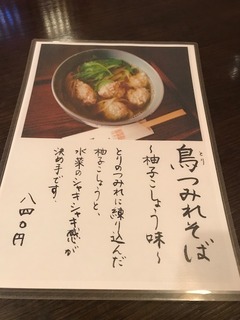 とり
鳥つみれそば
〜柚子こしょう味〜
とりのつみれに練り込んだ
柚子こしょうと、
水菜のシャキシャキ感が
決め手です。
八四〇円